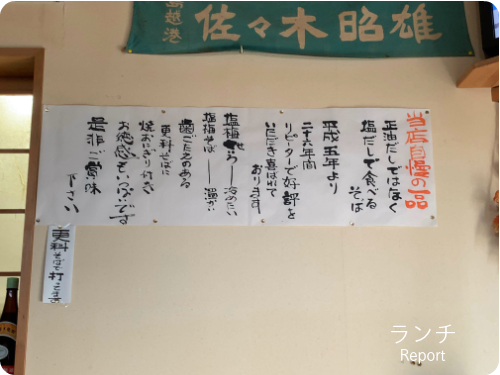 島越港
佐々木昭雄
当店自慢の一品
正油だしではなく
塩だしで食べる
そば
平成五年より
二十六年間
リピーターで好評を
いただき喜ばれて
おります
塩梅ざる――冷めたい
塩梅そば――温かい
歯ごたえのある
更科そばに
焼おにぎり付き
お腹いっぱいです
是非ご賞味
下さい
更科そばで打
ランチ
Report